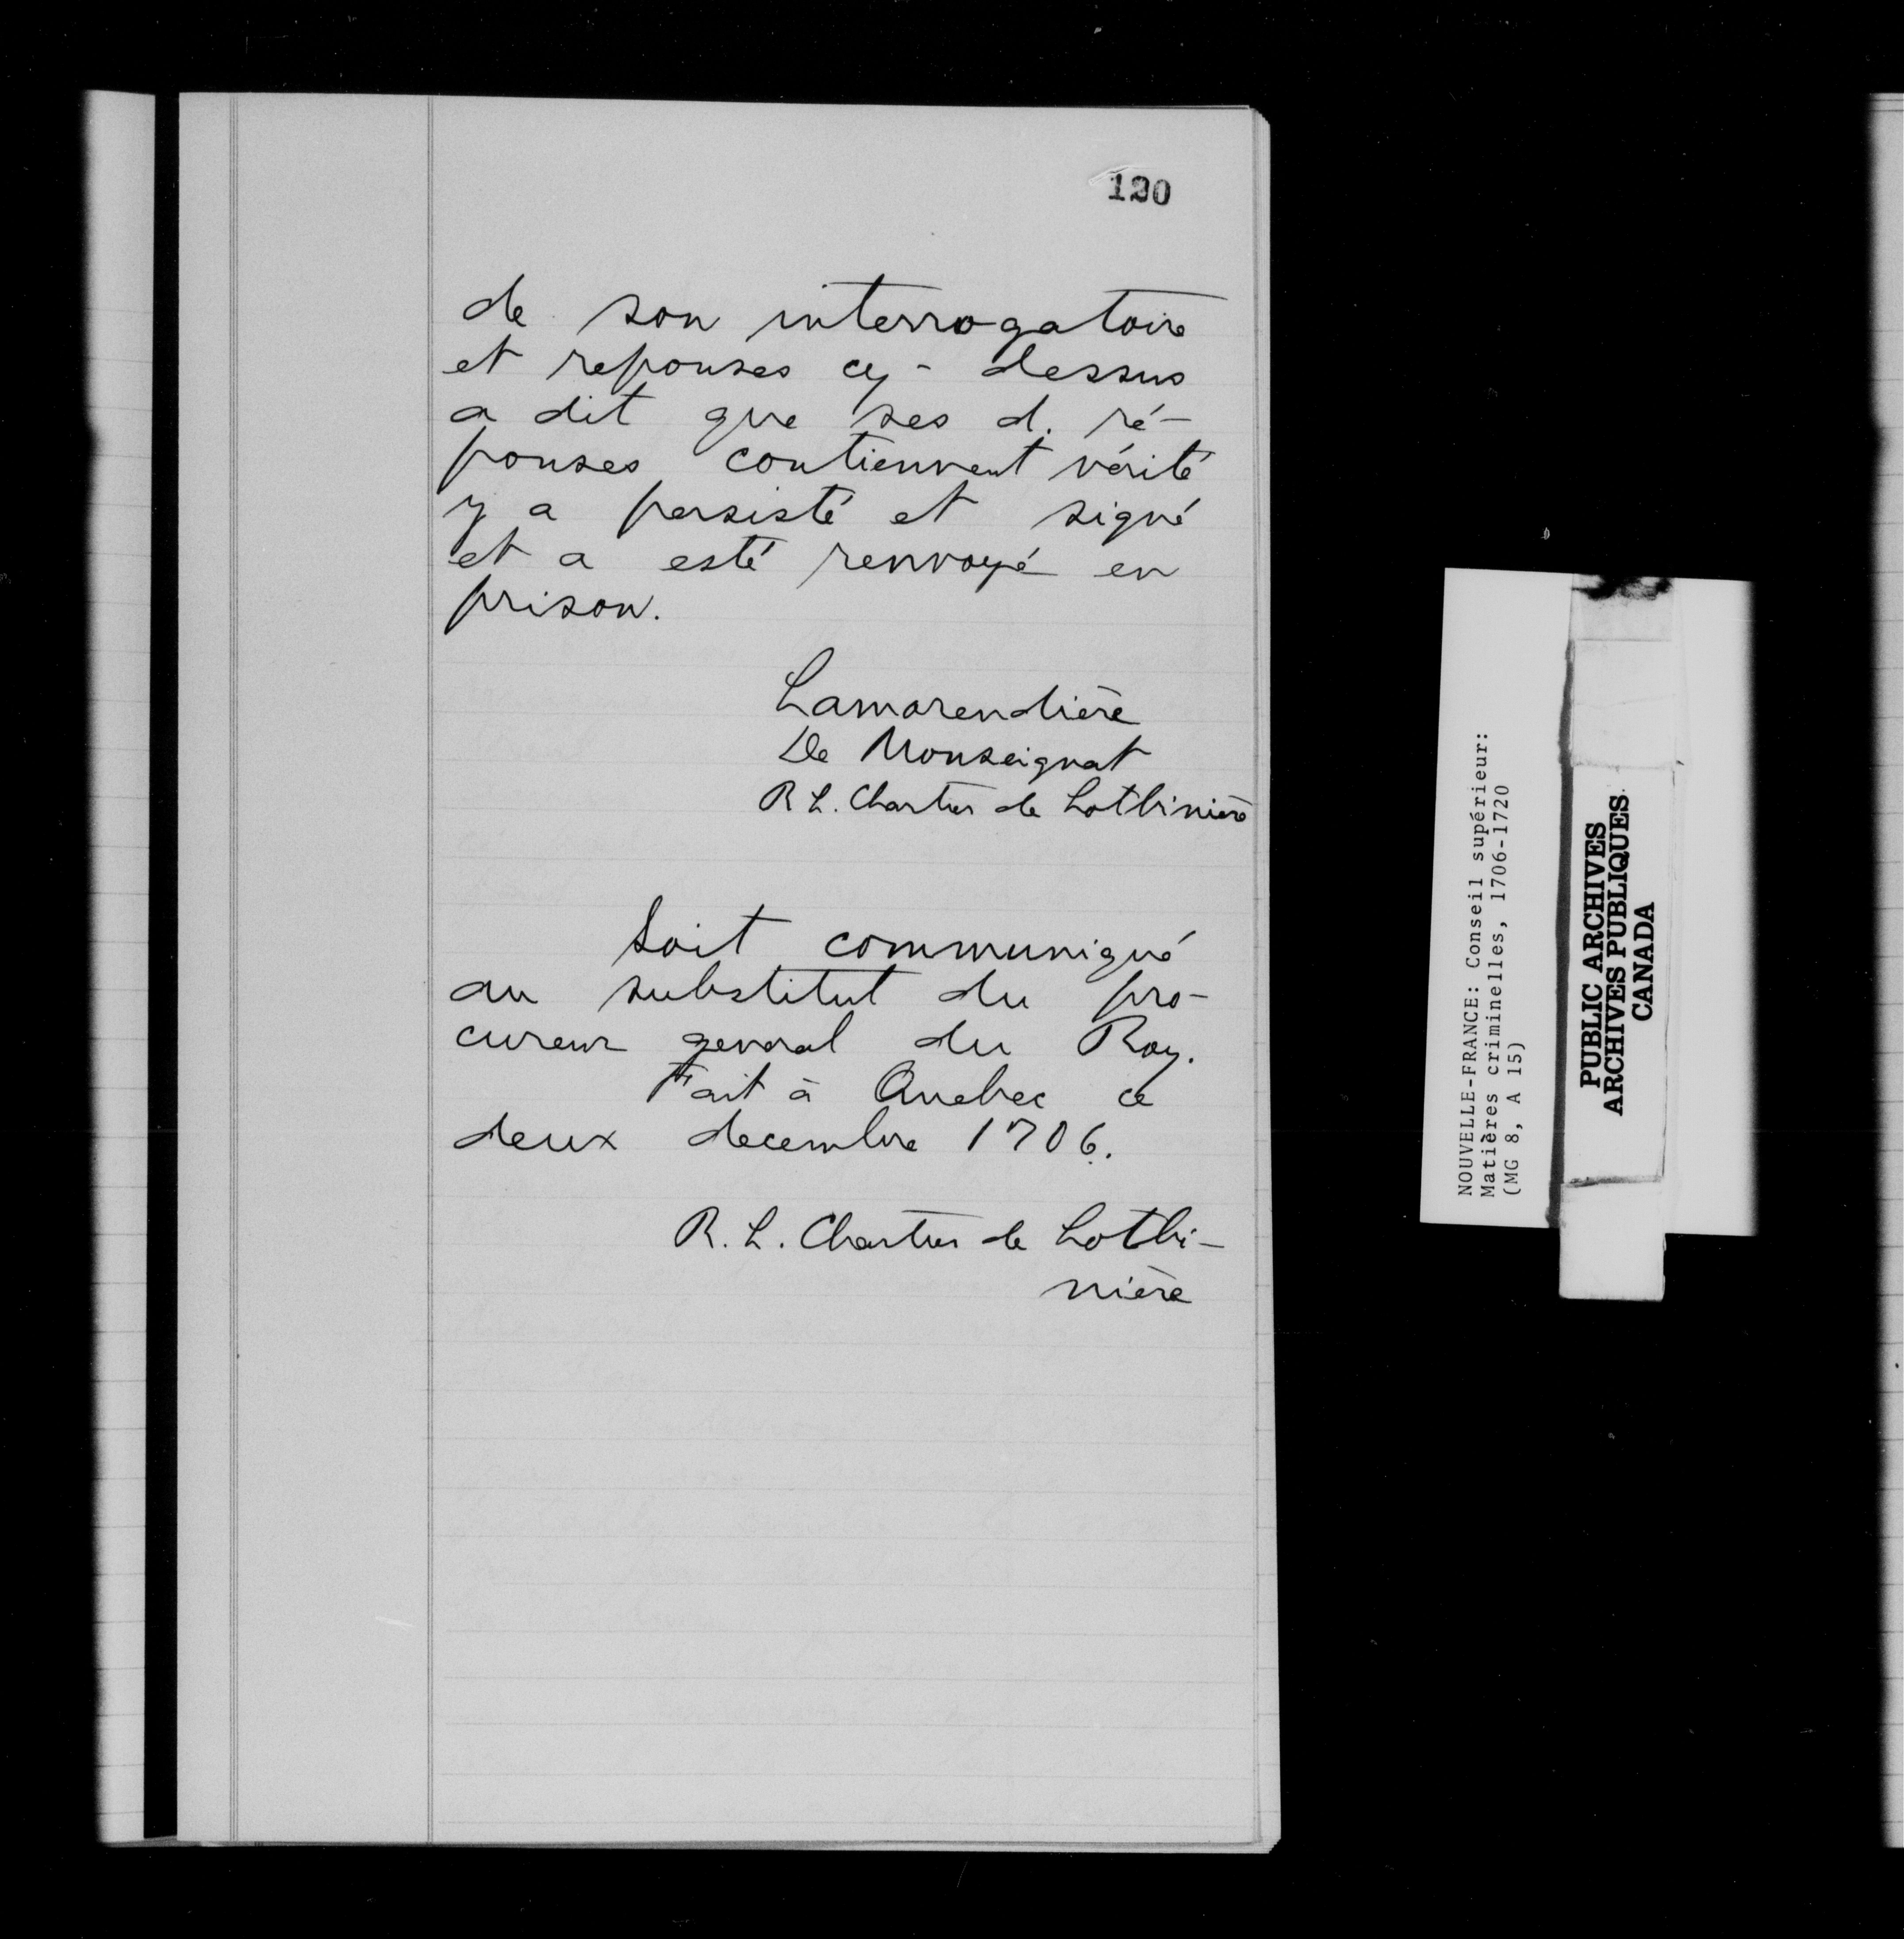 120
de son interrogatoire
et reponses cy-dessus
a dit que ses d. ré-
ponses contiennent vérité
y a persisté et signé
et a esté renvoyé en
prison.
Lamorendière
De Monseignat
R L. Chartier de Lotbinière
Soit communiqué
au substitut du pro-
cureur general du Roy.
Fait à Quebec ce
deux decembre 1706.
R. L. Chartier de Lotbi-
nière
NOUVELLE-FRANCE: Conseil supérieur:
Matières criminelles, 1706-1720
(MG 8, A 15)
PUBLIC ARCHIVES
ARCHIVES PUBLIQUES
CANADA